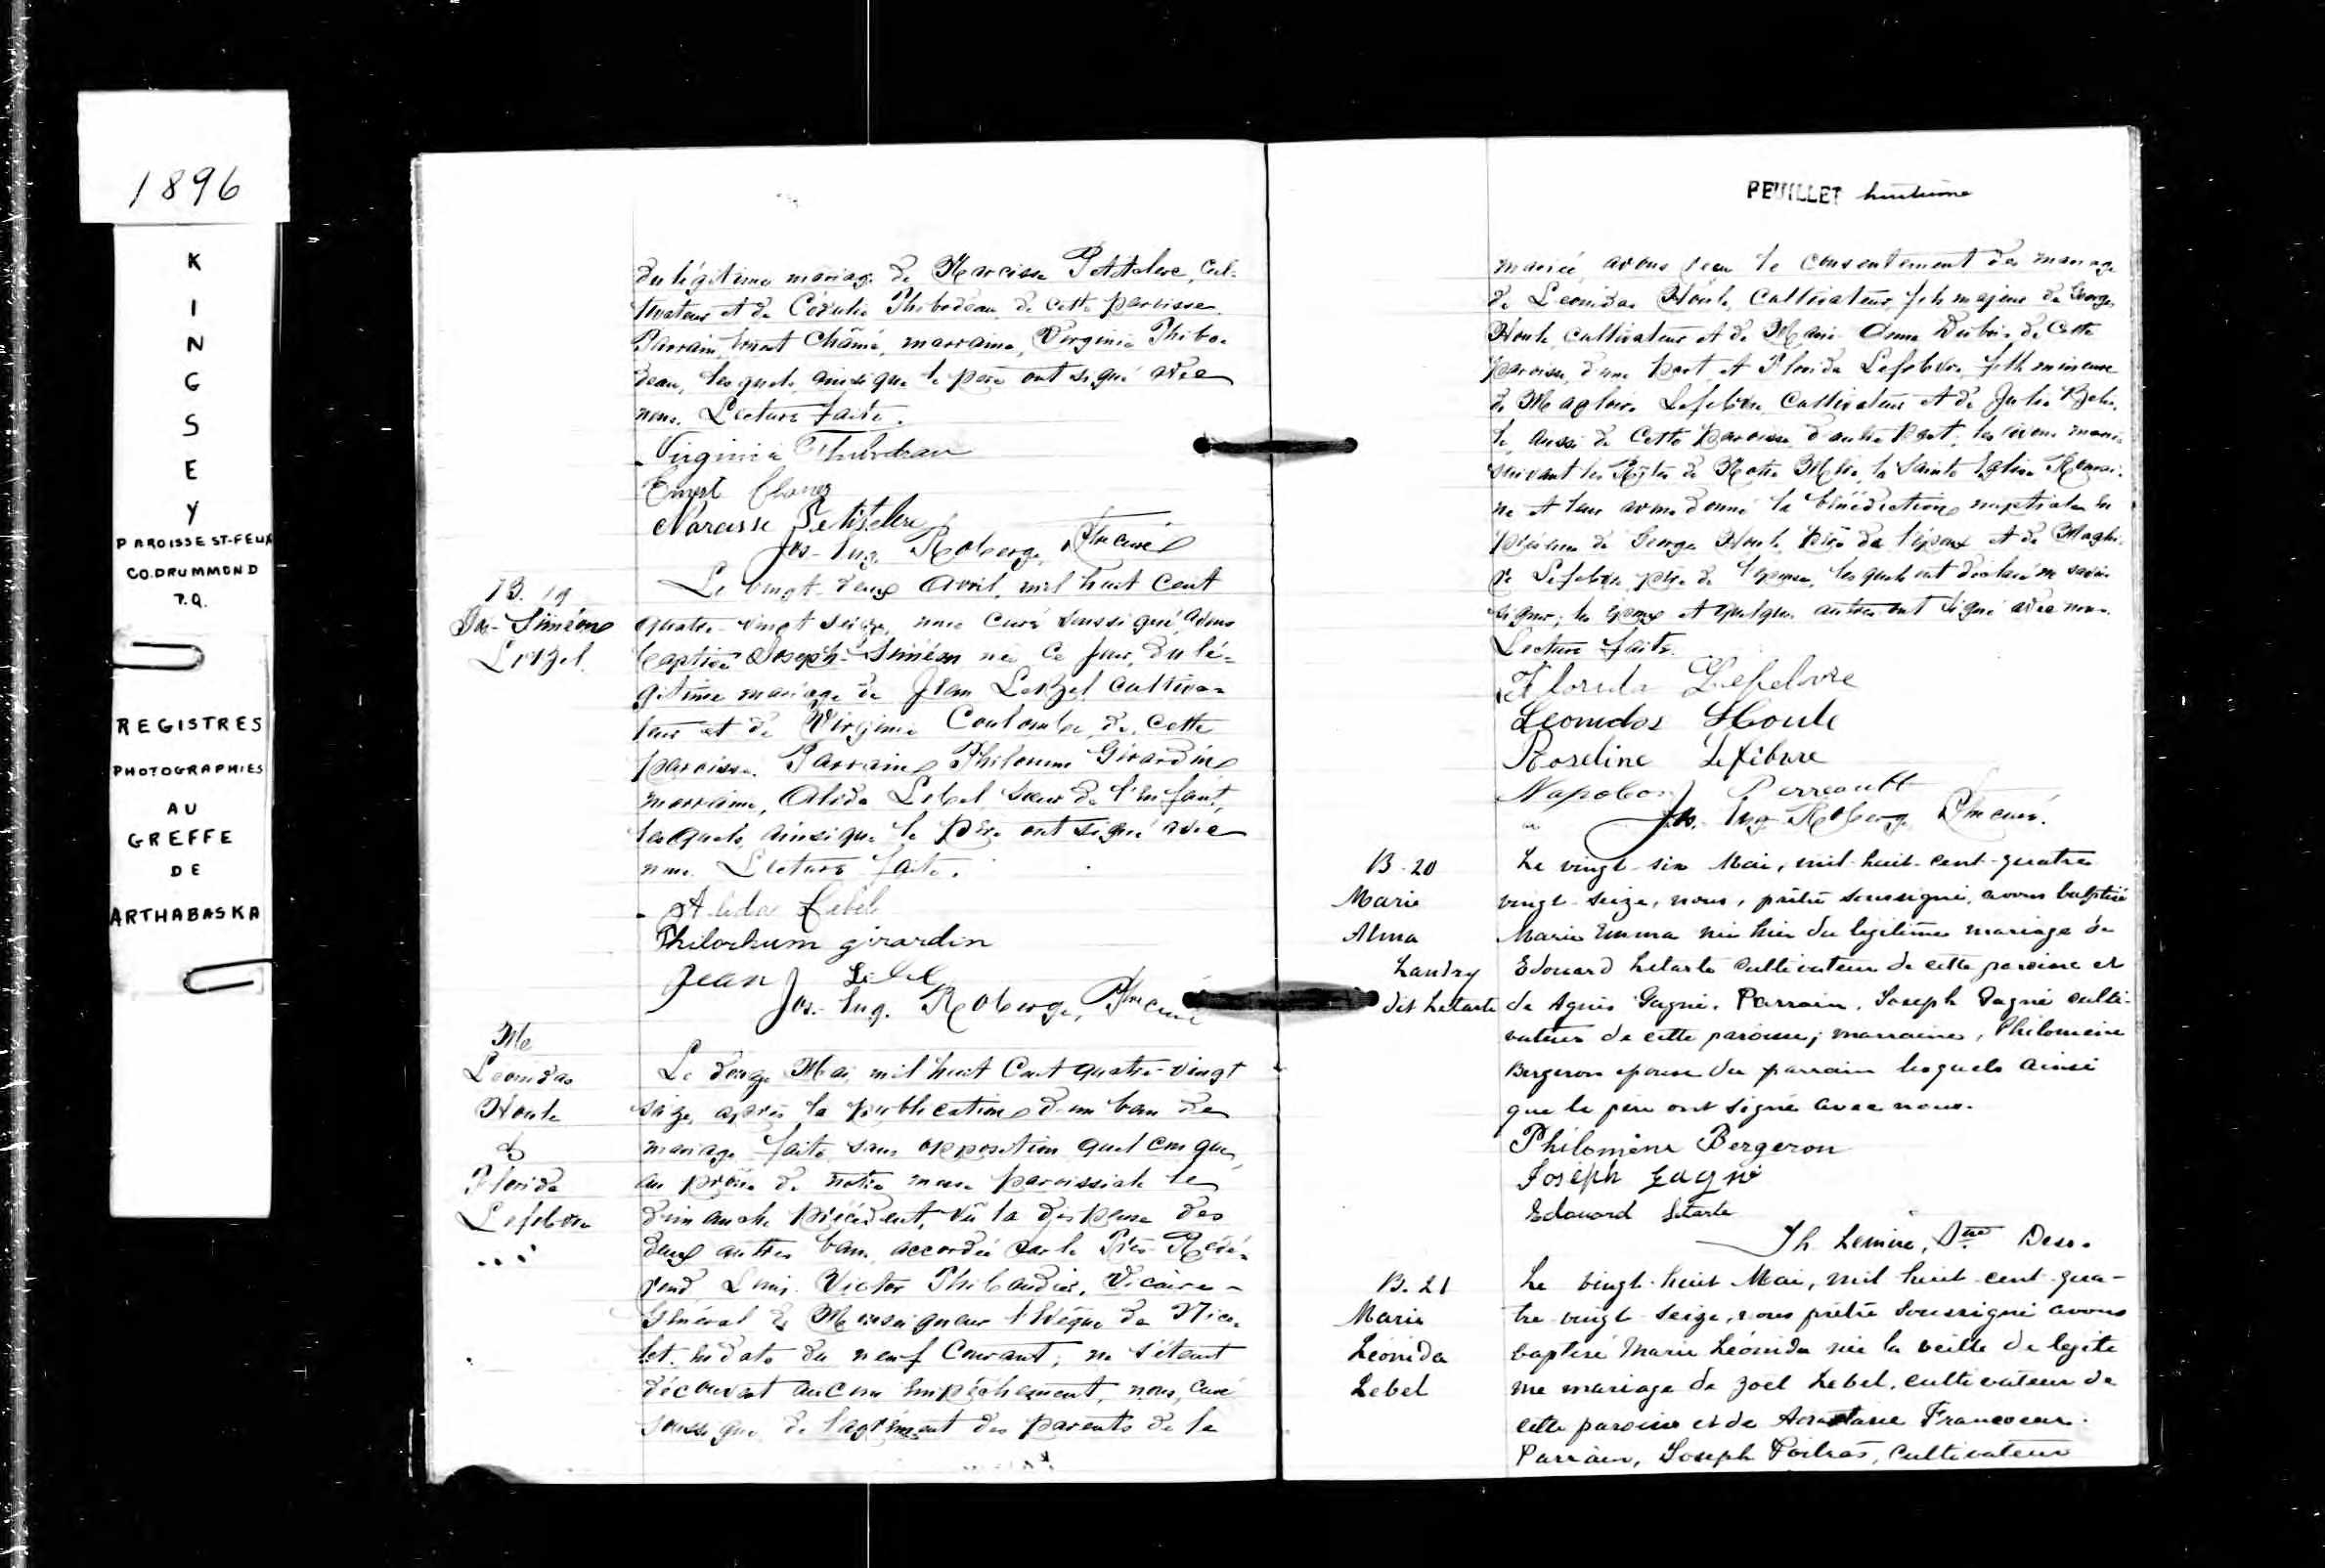 1896
K
I
N
G
S
E
Y
PAROISSE ST-FELIX
CO. DRUMMOND
P.Q.
REGISTRES
PHOTOGRAPHIES
AU
GREFFE
DE
ARTHABASKA
du légitime mariage de Narcisse Petitclerc, cul-
tivateur et de Cédulie Thibodeau de cette paroisse.
Parrain, Ernest marraine, Virginie Thibo-
deau, lesquels ainsi que le père ont signé avec
nous. Lecture faite.
Virginia Thibodeau
Ernest
Narcisse Petitclerc
Jos. Eug. Roberge, Ptre curé
B. 19
Jos-Siméon
Lebel.
Le vingt-deux Avril, mil huit cent
quatre-vingt seize, nous curé soussigné, avons
baptisé Joseph-Siméon né ce jour, du lé-
gitime mariage de Jean Lebel cultiva-
teur et de Virginie Coulombe de cette
paroisse. Parrain Philorum Girardin
marraine, Alida Lebel sœur de l'enfant,
lesquels ainsi que le père ont signé avec
nous. Lecture faite.
Alida Lebel
Philorum girardin
Jean Lebel
Jos. Eug. Roberge, Ptre curé
Me
Leonidas
Houle
&
Florida
Lefebvre
Le douze Mai, mil huit cent quatre-vingt
seize, après la publication d'un ban de
mariage faite sans opposition quelconque,
au prône de notre messe paroissiale le
dimanche précédent, vû la dispense des
deux autres bans accordée par le Très-Révé-
rend Louis Victor Thibaudier, Vicaire-
Général de Monseigneur l'Evêque de Nico-
let, en date du neuf courant; ne s'étant
découvert aucun empêchement, nous, curé
soussigné de l'agrément des parents de la
FEUILLET huitième
mariée avons reçu le consentement de mariage
de Léonidas Houle, cultivateur, fils majeur de George
Houle, cultivateur et de Marie Anne Dubois de cette
paroisse, d'une part, et Florida Lefebvre, fille mineure
de Magloire Lefebvre, cultivateur et de Julie
le aussi de cette paroisse d'autre part; les avons mariés
suivant les Règles de Notre Mère, la Sainte Eglise Romai-
ne et leur avons donné la bénédiction nuptiale en
présence de George Houle, père de l'époux et de Magloi-
re Lefebvre, père de l'épouse, lesquels ont déclaré ne savoir
signer; les époux et quelques autres ont signé avec nous.
Lecture faite.
Florida Lefebvre
Leonidas Houle
Roseline Lefebvre
Napoleon Perreault
Jos. Eug. Roberge Ptre curé.
B. 20
Marie
Alma
Landry
dit Letarte
Le vingt-six Mai, mil-huit-cent-quatre
vingt-seize, nous, prêtre soussigné, avons baptisé
Marie Emma née hier du légitime mariage de
Edouard Letarte cultivateur de cette paroisse et
de Agnès Gagné. Parrain, Joseph Gagné culti-
vateur de cette paroisse; marraine, Philomène
Bergeron épouse du parrain lesquels ainsi
que le père ont signé avec nous.
Philomène Bergeron
Joseph Gagné
Edouard Letarte
Th. Lemire, Ptre Dess.
B. 21
Marie
Léonida
Lebel
Le vingt-huit Mai, mil huit-cent-qua-
tre vingt-seize, nous prêtre soussigné avons
baptisé Marie Léonida née la veille de légiti
me mariage de Zoel Lebel, cultivateur de
cette paroisse et de Anastasie Francoeur.
Parrain, Joseph Poitras, cultivateur